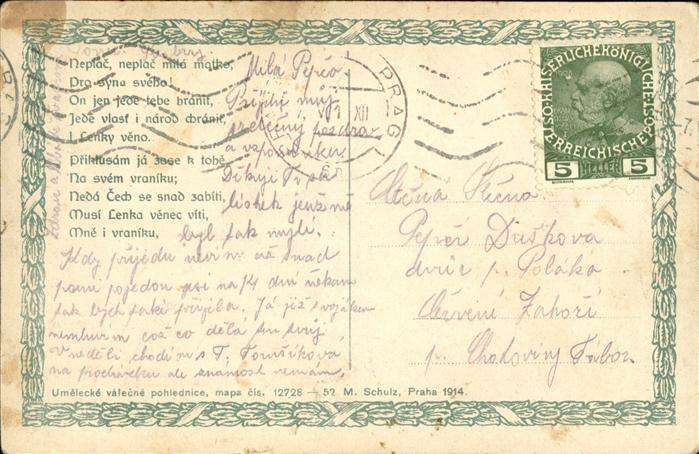 Neplač, neplač milá matko,
Pro syna svého!
On jen jede tebe hránit,
Jede vlast i národ chránit,
I Lenky věno.
Přiklusám já zase k tobě
Na svém vraníku;
Nedá Čech se snad zabíti,
Musí Lenka věnec víti,
Mně i vraníku,
Milá Pepčo
Přijmi můj
srdečný pozdrav
a vzpomínku.
Děkuji Ti
lístek jenž mě
byl tak milý.
Kdy přijedu nevím až snad
pani pojedou asi na 14 dní někam
tak bych také přijela. Já již s vojákem
nemluvím což co dělá ten tvůj
V neděli chodím s T. Tomšíkovou
na procházku ale známost nemám.
Umělecké válečné pohlednice, mapa čís. 12728 — 52 M. Schulz, Praha 1914.
PRAG
XII
KAISERLICHEKÖNIGLICHE
ÖSTERREICHISCHE POST
5 HELLER 5
Ctěná Slečna
Pepči Dušková
dvůr p. Poláka
Červení Záhoří
p. Chotoviny Tábor